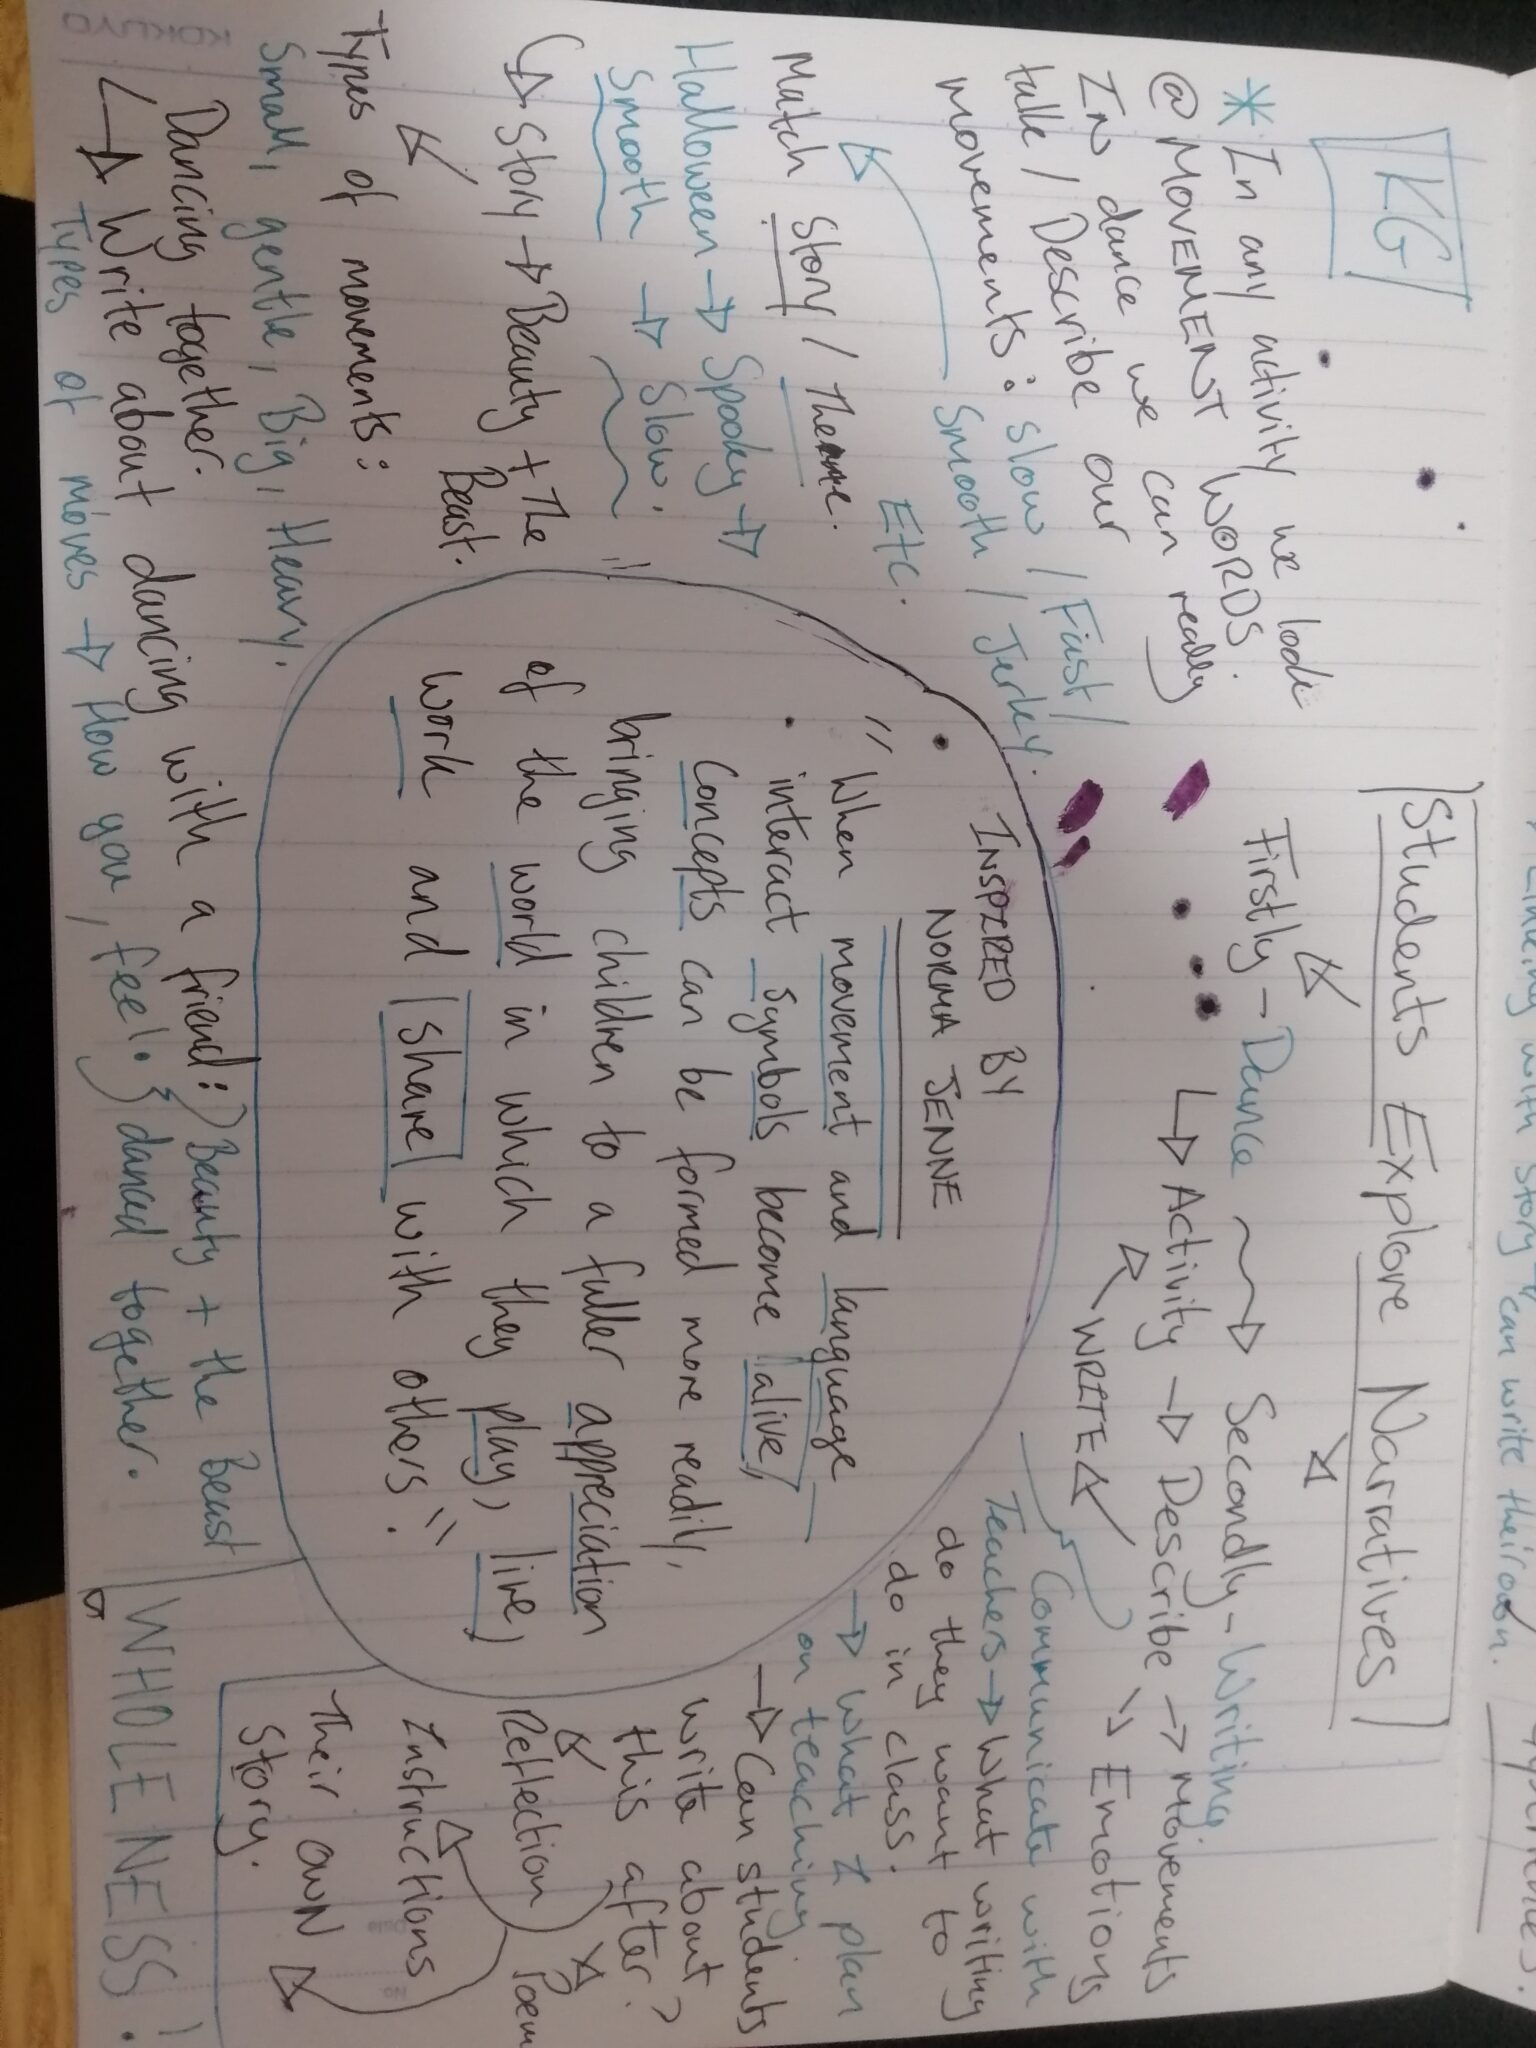 with story can write their own.
KG
Students Explore Narratives
Firstly - Dance → Secondly - Writing
↳ Activity → Describe → Movements
↘ Emotions
WRITE
* In any activity we look
@ MOVEMENT WORDS.
In dance we can really
talk / Describe our
movements: slow / Fast /
Smooth / Jerky.
Etc.
Match Story / Theme.
Halloween → Spooky →
Smooth → Slow.
↳ Story → Beauty + The
Beast.
Types of movements:
Small, gentle, Big, Heavy.
Dancing together.
↳ Write about dancing with a friend: Beauty + the Beast
Types of moves → How you feel. danced together.
INSPIRED BY
NORMA JENNE
"When movement and language
interact symbols become alive,
concepts can be formed more readily,
bringing children to a fuller appreciation
of the world in which they play, live,
work and share with others".
Communicate with
Teachers → What writing
do they want to
do in class.
→ What I plan
on teaching
→ Can students
write about
this after?
Reflection Poem
Instructions
Their own
Story.
WHOLENESS!
KOKUYO